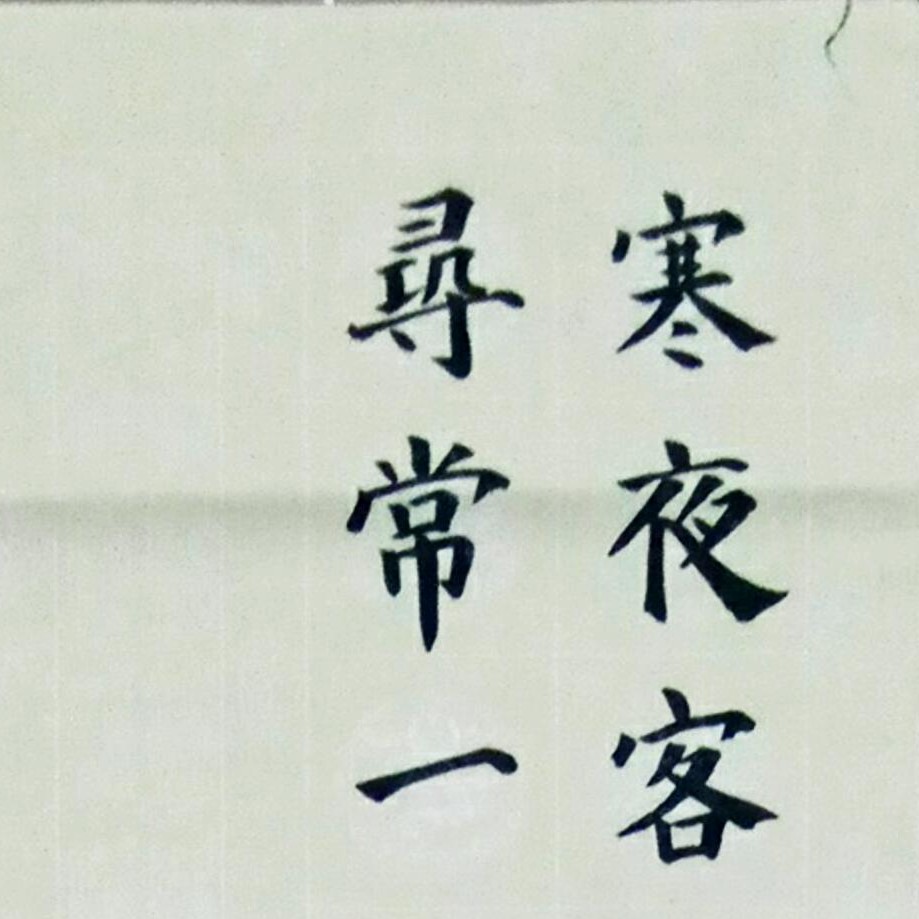 寒夜客
尋常一